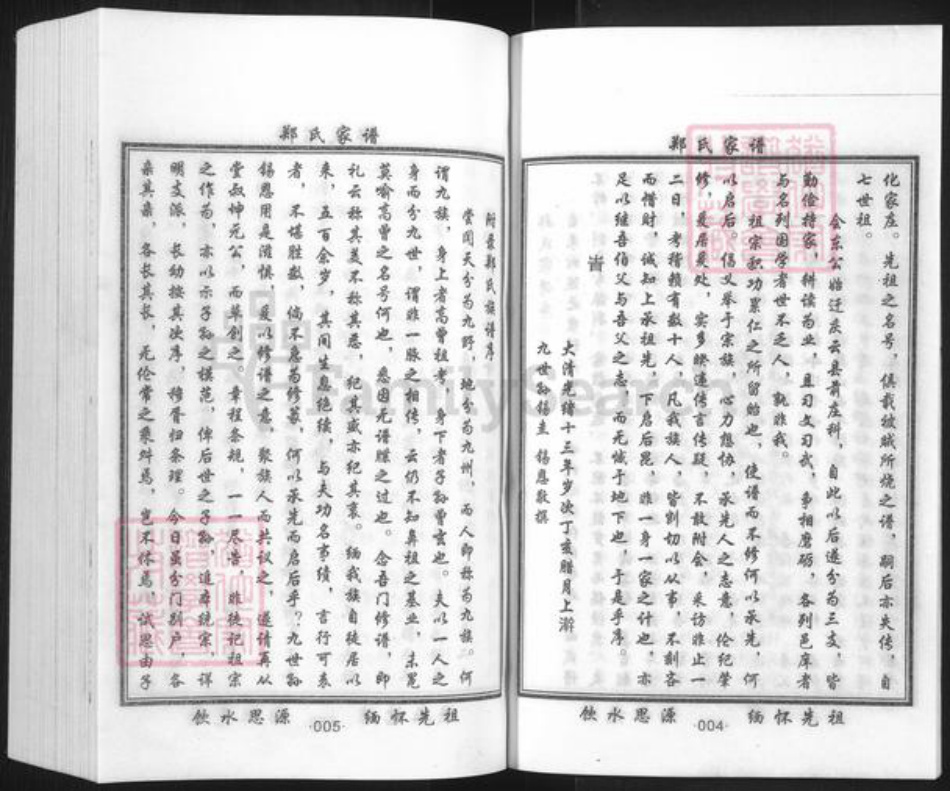 郑氏家谱
化家庄。先祖之名号，俱载被贼所烧之谱，嗣后亦失传，自
七世祖。
金东公始迁庆云县前庄科，自此以后遂分为三支，皆
勤俭持家，耕读为业，且习文习武，争相磨砺，各列邑庠者
与名列国学者世不乏人，孰非我。
祖宗积功累仁之所留贻也，使谱而不修何以承先，何
以启后。倡义举于宗族，心力想协，承先人之志意，伦纪肇
修，爰居爰处，实多暌违传言传疑，不敢附会，采访非止一
二日，考稽赖有数十人，凡我族人，皆剀切以从事，不刻吝
而惜财，诚知上承祖先，下启后昆，非一身一家之计也，亦
足以继吾伯父与吾父之志，而无憾于地下也，于是乎序。
旹
大清光绪十三年岁次丁亥腊月上澣
九世孙锡圭 锡恩敬撰
缅怀先祖
饮水思源
·004·
郑氏家谱
附录郑氏族谱序
尝闻天分为九野，地分为九州，而人即称为九族。何
谓九族，身上者高曾祖考，身下者子孙曾玄也。夫以一人之
身而分九世，谓非一脉之相传，云仍不知鼻祖之基业，末冕
莫喻高曾之名号何也，悉因无谱牒之过也。念吾门修谱，即
礼云称其美不称其恶，纪其盛亦纪其衰。缅我族自徒居以
来，五百余岁，其间生息绝续，与夫功名事绩，言行可表
者，不堪胜数，倘不急为修纂，何以承先而启后乎？九世孙
锡恩用是滋惧，爰以修谱之意，聚族人而共议之，遂请再从
堂叔坤元公，而草创之。章程条规，一一尽善，非徒记祖宗
之作为，亦以示子孙之模范，俾后世之子孙，追本统宗，详
明支派，长幼按其次序，穆胥归条理。今日虽分门别户，各
亲其亲，各长其长，无伦常之乘舛焉，岂不休焉，试思由子
缅怀先祖
饮水思源
·005·